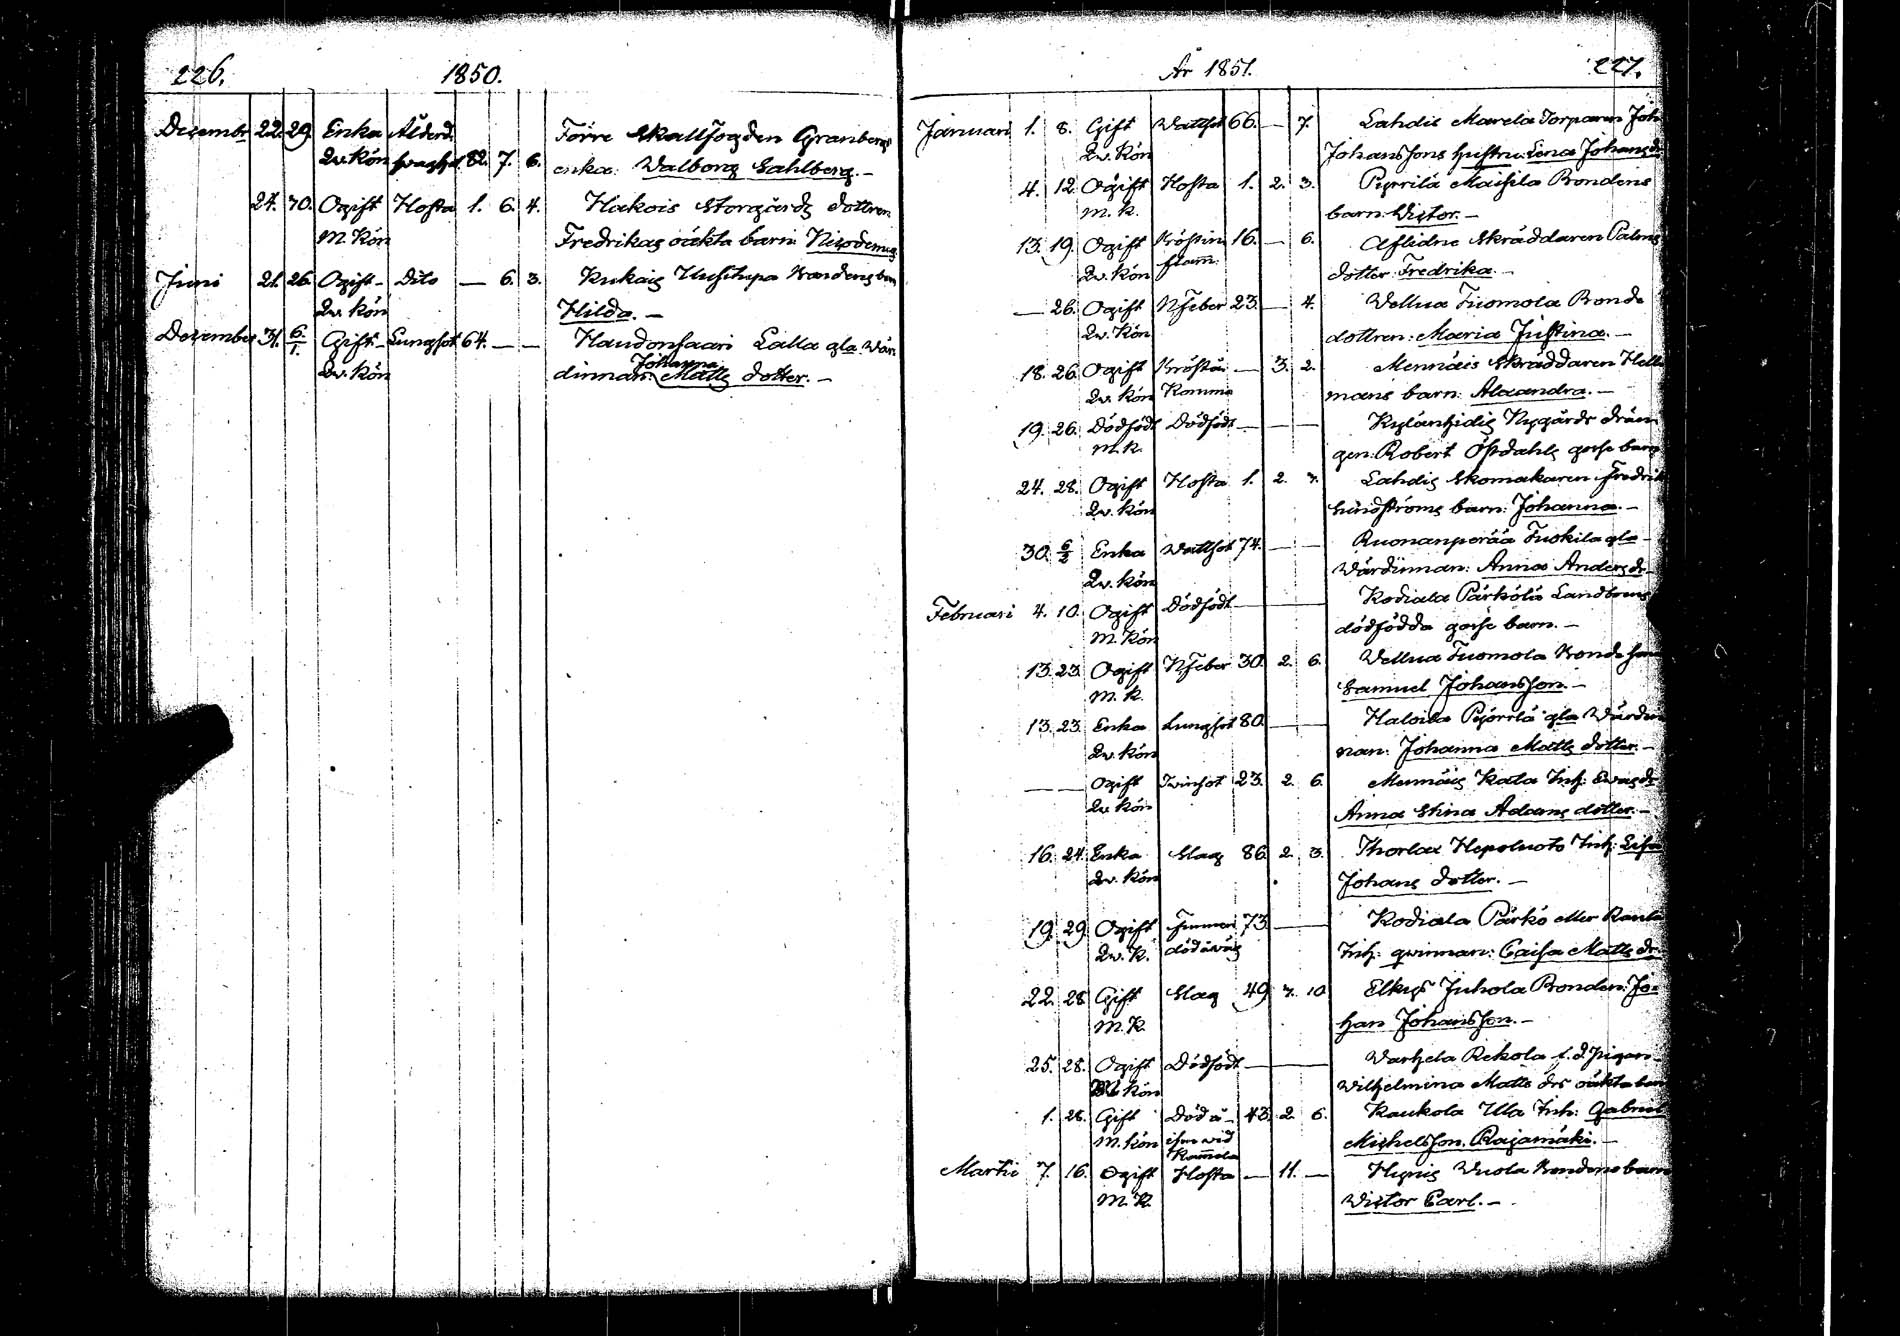 226. 1850.
Dezembr 22. 29. Enka Ålderd. Förre Skallfogden Granbergs
Qv. Kön svaghet 82. 7. 6. enka: Walborg Sahlberg. –
24. 30. Ogift Hosta 1. 6. 4. Hakois Storgårds dottren
M. Kön Fredrikas oäkta barn: Nicodemus.
Juni 21. 26. Ogift – Dito — 6. 3. Kukais Uusitupa Bondens barn
Qv. kön Hilda. –
Dezember 31. 6/1. Gift – Lungsot 64. — — Haudonsaari Lalla gla Wär-
Johanna
Qv. Kön dinnan: Matts dotter. –
År 1851. 227.
Januari 1. 8. Gift Wattsot 66. — 7. Lahdis Marela Torparen Joh
Qv. Kön Johanssons hustru: Lena Johans dr
4. 12. Ogift Hosta 1. 2. 3. Pyrrilä Maisila Bondens
M. K. barn: Wictor. –
13. 19. Ogift 16. — 6. Aflidne Skräddaren Palms
Qv. Kön dotter: Fredrika –
— 26. Ogift Nfeber 23. — 4. Wellua Tuomola Bonde
Qv. Kön dottren: Maria Justina. –
18. 26. Ogift — 3. 2. Mennäis Skräddaren Hell
Qv. Kön mans barn: Alexandra. –
19. 26. Dödfödt Dödfödt — — Kylänhidis Nygårds drän
M. K. gen: Robert Öfvdahls gosse barn
24. 28. Ogift Hosta 1. 2. 7. Lahdis Skomakaren Fredrik
Qv. Kön Lindströms barn: Johanna. –
30. 6/2 Enka Wattsot 74. — — Ruonanperää Tuokila gla –
Qv. kön Wärdinnan: Anna Anders dr –
Februari 4. 10. Ogift Dödfödt — Kodiala Pärkölä Landbonds
M. Kön dödfödda gosse barn. –
13. 23. Ogift Nfeber 30. 2. 6. Wellua Tuomola Bonde son
M. K. Samuel Johansson. –
13. 23. Enka Lungsot 80. — Haloila Pyörrilä gla Wärdin
Qv. Kön nan: Johanna Matts dotter. –
— — Ogift Twinsot 23. 2. 6. Mennäis Kala Inh: Ewas dr
Qv. Kön Anna Stina Adams dotter. –
16. 24. Enka Slag 86. 2. 3. Thorlax Hepoluoto Inh:
Qv. kön Johans dotter. –
19. 29. Ogift 73. — Kodiala Pärkö eller
Qv. K. Inh: qvinnan: Caisa Matts dr. –
22. 28. Gift Slag 49. 7. 10. Elkys Juhola Bonden: Jo-
M. K. han Johansson. –
25. 28. Ogift Dödfödt — Warhela Rekola f. d. Pigan
Kön Wilhelmina Matts drs oäkta barn
1. 28. Gift Död å – 43. 2. 6. Kaukola Ula Inh: Gabriel
M. Kön isen vid Michelsson Rajamäki. –
Martii 7. 16. Ogift Hosta — 11. — Hyrvis Wuola Bondens barn
M. K. Wictor Carl. –